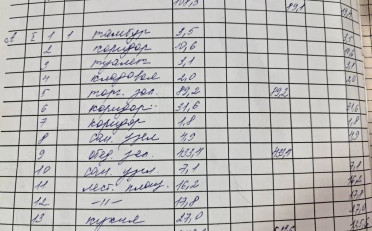 89,1
А I 1 1 тамбур 3,5
2 коридор 10,6
3 туалет 3,1
4 кладовая 2,0 2,0
5 торг. зал. 89,2 89,2
6 коридор 31,6 31,6
7 коридор 1,8 1,8
8 сан. узел 4,9 4,9
9 обед. зал. 433,4
10 сан. узел 7,1 7,8
11 лест. площ. 16,2 16,2
12 —"— 17,8 17,8
13 кухня 27,0 27,0